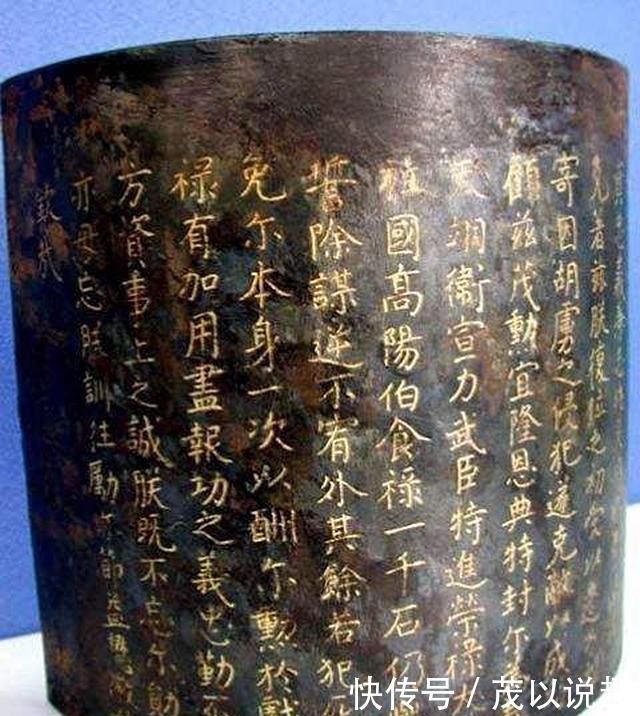 克者茲朕復位之初受以邊
寄因胡虜之侵犯遂克敵以成
顧茲茂勳宜隆恩典特封尔為
天翊衛宣力武臣特進榮祿大
柱國高陽伯食祿一千石仍
誓除謀逆不宥外其餘若犯死
免尔本身一次以酬尔勳於戲
禄有加用盡報功之義忠勤不
方資事上之誠朕既不忘尔勳
亦毋忘朕訓往勵
欽哉
快传号／茂以说